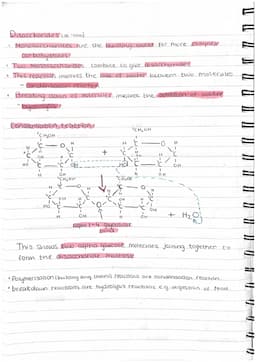 Disaccharides
• Monosaccharides are the building blocks for more complex
carbohydrates
• Two monosaccharides combine to give disaccharides
• This reaction involves the loss of water between two molecules
- condensation reaction
• Breaking down of molecules involves the addition of water
- hydrolysis
Condensation reaction
⁶CH₂OH
⁶CH₂OH
+
+ H₂O
bond
This shows two alpha glucose molecules joining together to
form the disaccharide maltose
reactions are condensation reaction
• breakdown reactions are hydrolysis reactions e.g. digestion of food